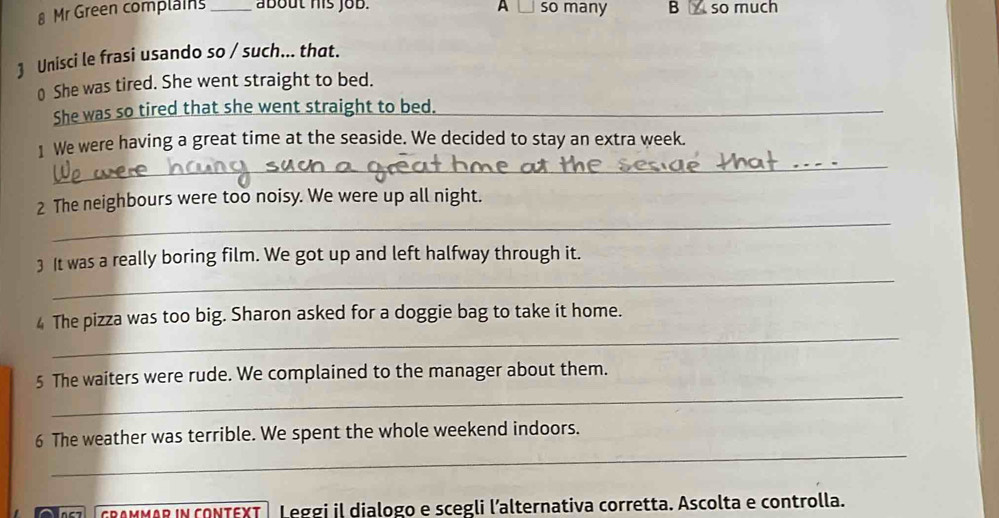 8 Mr Green complains ____ about his job. A so many B so much
3 Unisci le frasi usando so / such... that.
0 She was tired. She went straight to bed.
She was so tired that she went straight to bed.
1 We were having a great time at the seaside. We decided to stay an extra week.
We were haung such a great hme at the seside that ....
2 The neighbours were too noisy. We were up all night.
3 It was a really boring film. We got up and left halfway through it.
4 The pizza was too big. Sharon asked for a doggie bag to take it home.
5 The waiters were rude. We complained to the manager about them.
6 The weather was terrible. We spent the whole weekend indoors.
GRAMMAR IN CONTEXT Leggi il dialogo e scegli l'alternativa corretta. Ascolta e controlla.